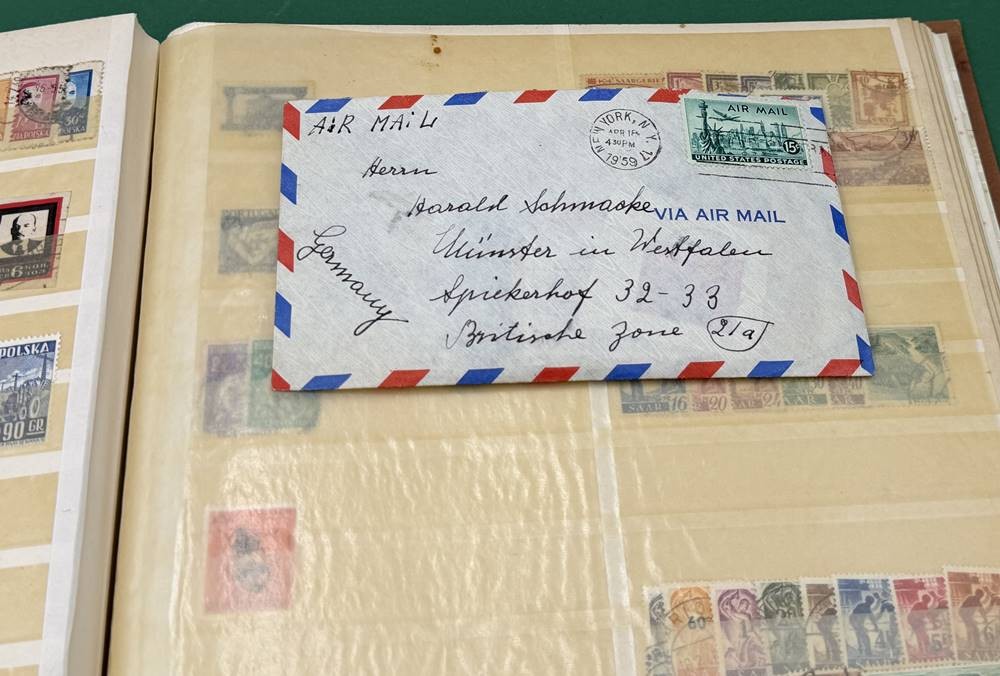 AiR MAiL
NEW YORK, N.Y. 17
APR 15
430PM
1959
AIR MAIL
15¢
UNITED STATES POSTAGE
Herrn
Harald Schmacke
VIA AIR MAIL
Münster in Westfalen
Germany
Spiekerhof 32-33
Britische Zone 21a
POLSKA
30
6
POLSKA
90 GR
SAARGEBIET
SAAR 16
20
SAAR 24
SAAR
SAAR
60
SAAR